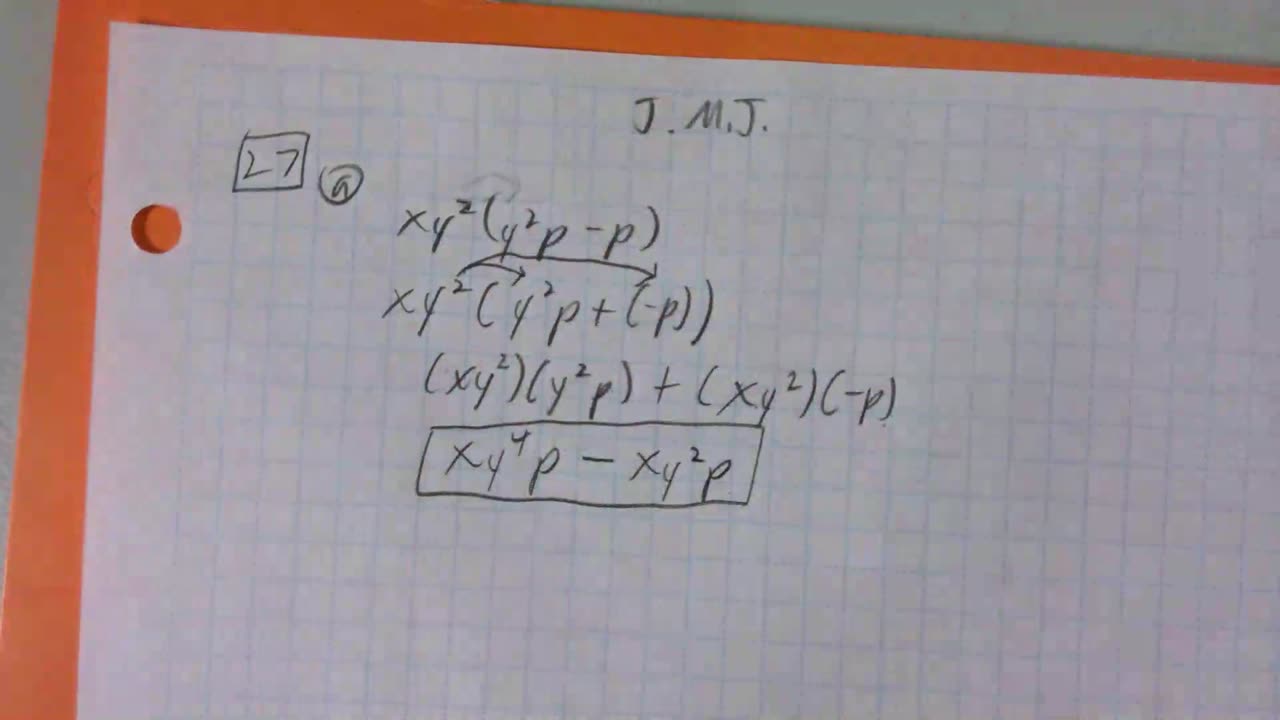 J.M.J.
27 a
xy²(y²p - p)
xy²(y²p + (-p))
(xy²)(y²p) + (xy²)(-p)
xy⁴p - xy²p